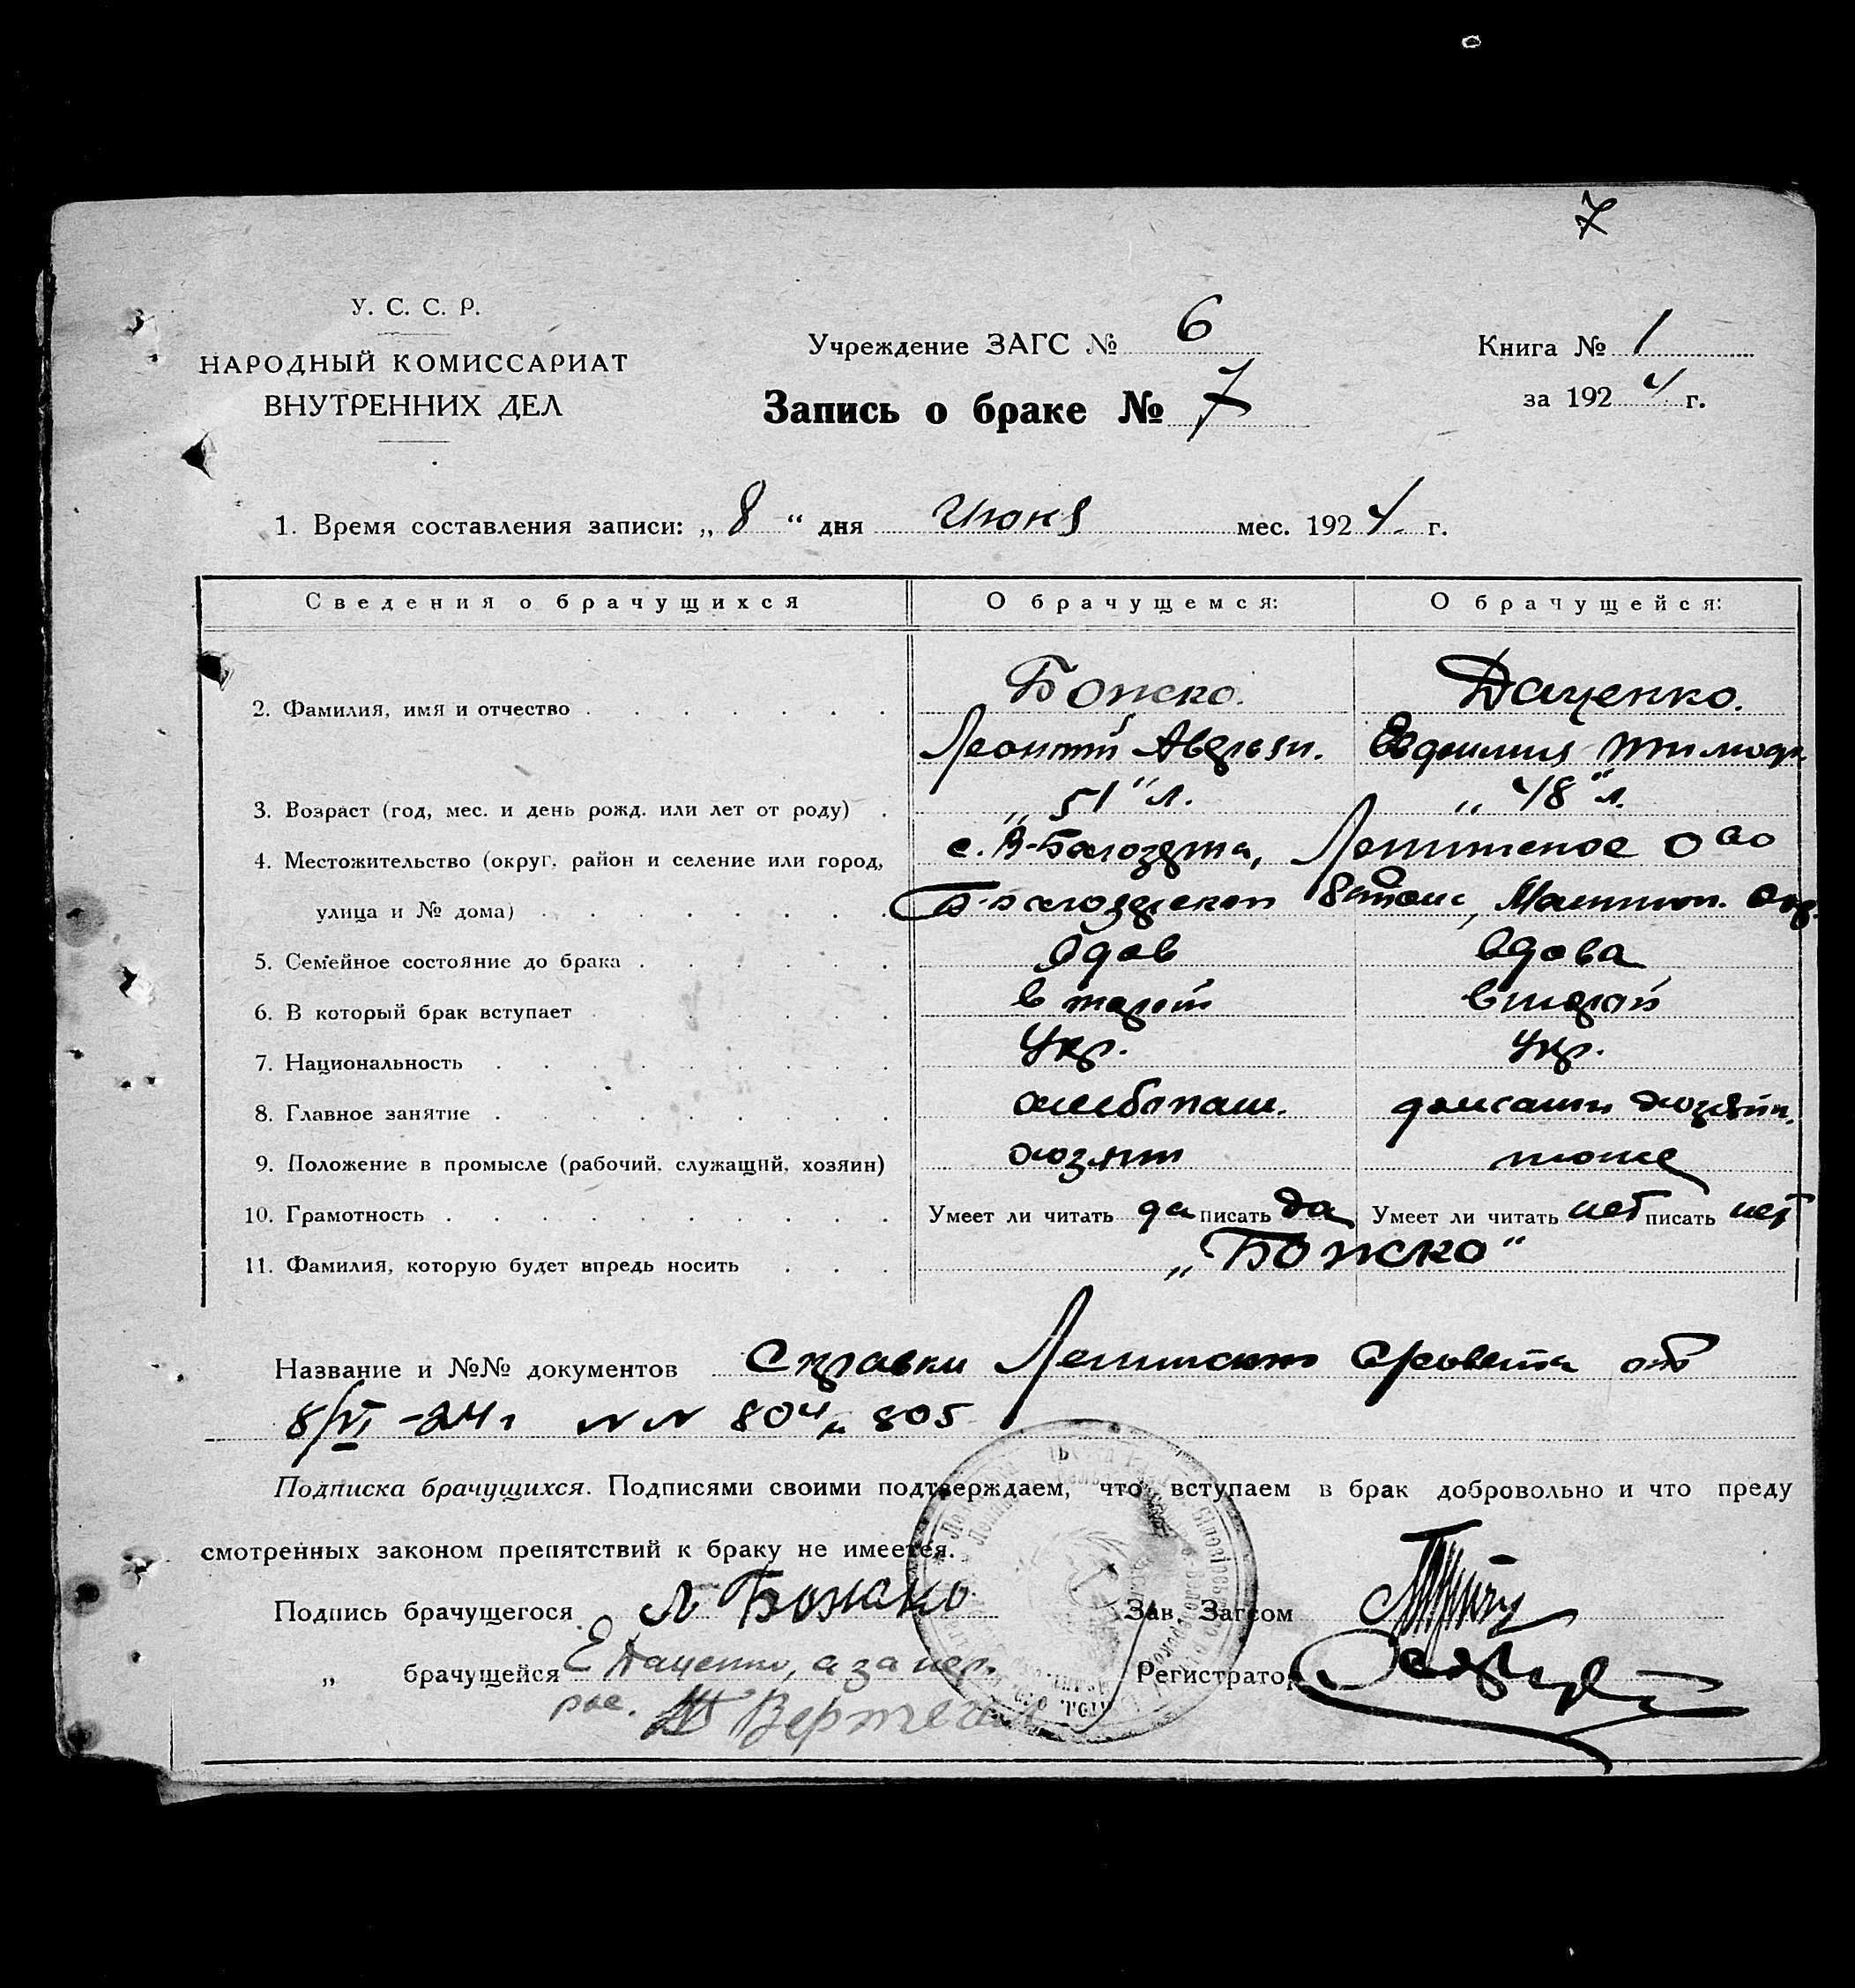 7
У. С. С. Р.
НАРОДНЫЙ КОМИССАРИАТ
ВНУТРЕННИХ ДЕЛ
Учреждение ЗАГС № 6
Запись о браке № 7
Книга № 1
за 1924 г.
1. Время составления записи: „8“ дня Июня мес. 1924 г.
Сведения о брачущихся О брачущемся: О брачущейся:
2. Фамилия, имя и отчество Божко. Даценко.
Леонтий Авдеян. Евдокия
3. Возраст (год, мес. и день рожд. или лет от роду) „51“ л. „48“ л.
4. Местожительство (округ, район и селение или город, с. В-Белозерка,
улица и № дома)
5. Семейное состояние до брака вдов вдова
6. В который брак вступает второй второй
7. Национальность Укр. Укр.
8. Главное занятие хлебопаш. домашн хозяйк.
9. Положение в промысле (рабочий, служащий, хозяин) хозяин тоже
10. Грамотность Умеет ли читать да писать да Умеет ли читать нет писать нет
11. Фамилия, которую будет впредь носить „Божко“
Название и №№ документов Справки от
8/VI -24 г N N 804 и 805
Подписка брачущихся. Подписями своими подтверждаем, что вступаем в брак добровольно и что преду
смотренных законом препятствий к браку не имеется.
Подпись брачущегося Л Божко Зав. Загсом
„ брачущейся Е Даценко, а за негр. Регистратор
рас.